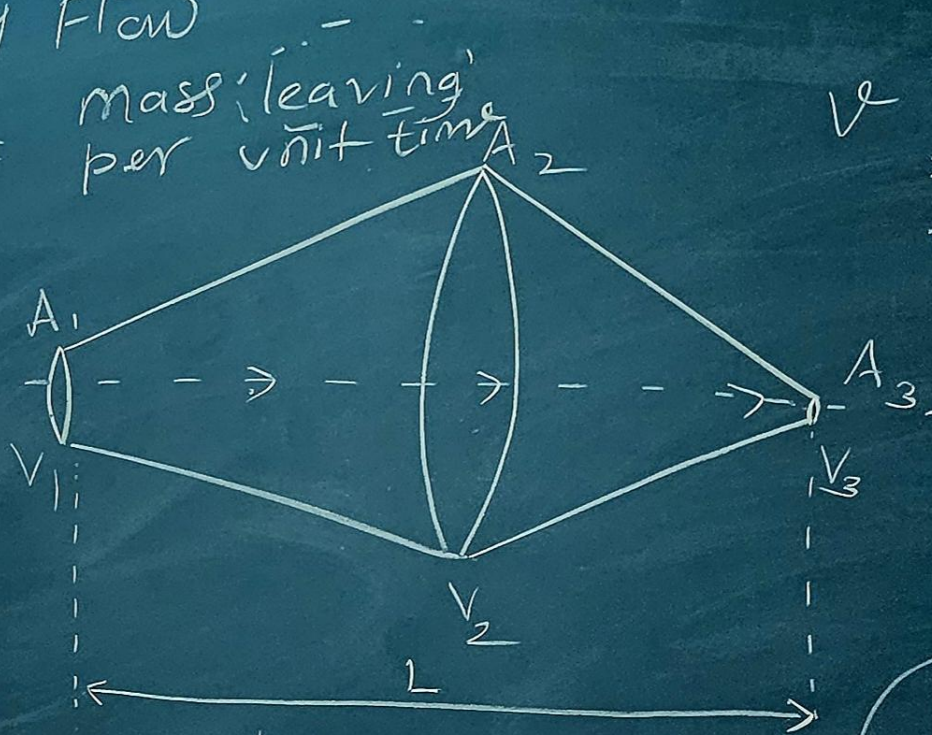 Flow
mass leaving
per unit time
V
A2
A1
A3
V1
V3
V2
L